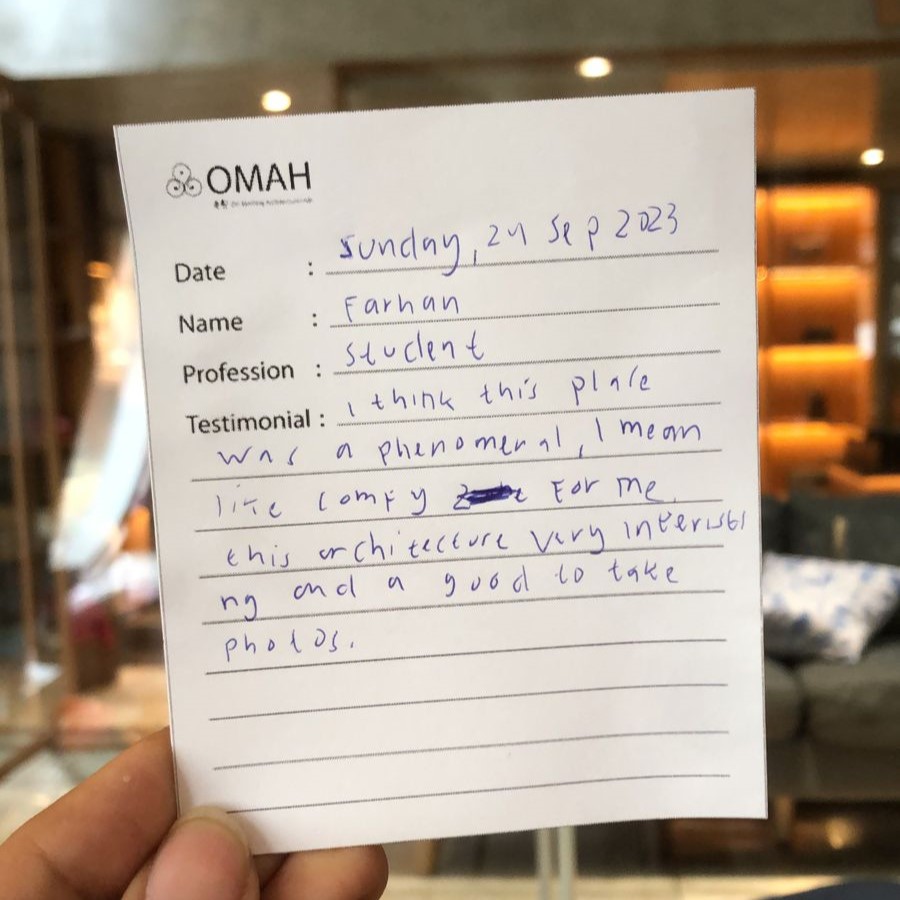 OMAH
Date : Sunday, 24 Sep 2023
Name : Farhan
Profession : Student
Testimonial : I think this place
was a phenomenal, I mean
like comfy for me.
this architecture very interisti
ng and a good to take
photos.